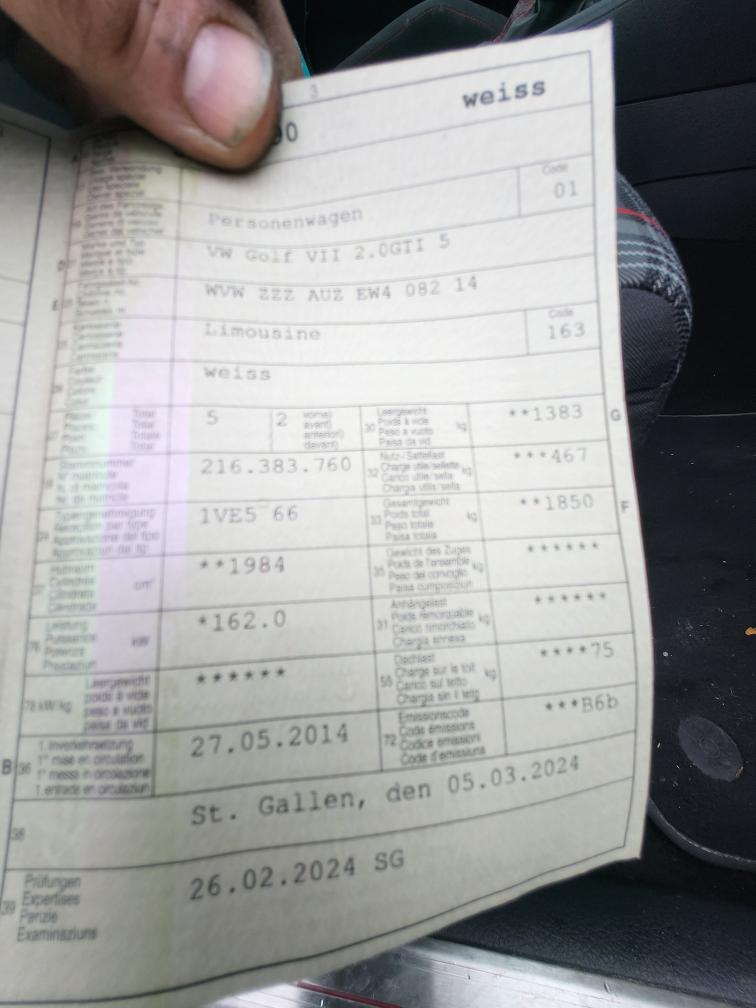 3
90 weiss
Code
01
Personenwagen
VW Golf VII 2.0GTI 5
WVW ZZZ AUZ EW4 082 14
Limousine
Code
163
weiss
5 2
vorne)
avant)
anteriori)
davant)
30
Leergewicht
Poids à vide
Peso a vuoto
Paisa da vid
kg
**1383
G
Stammnummer
N° matricule
N. di matricola
Nr. da matricla
216.383.760
32
Nutz-/Sattellast
Charge utile/sellette
Carico utile/sella
Chargia utila/sella
kg
***467
24
Typengenehmigung
Réception par type
Approvazione del tipo
Approvaziun da tip
1VE5 66
33
Gesamtgewicht
Poids total
Peso totale
Paisa totala
kg
**1850
F
37
Hubraum
Cylindrée
Cilindrata
cm³
**1984
35
Gewicht des Zuges
Poids de l'ensemble
Peso del convoglio
Paisa cumposiziun
kg
******
76
Leistung
Puissance
Potenza
Prestaziun
kW
*162.0
31
Anhängelast
Poids remorquable
Carico rimorchiato
Chargia annexa
kg
******
78 kW/kg
Leergewicht
poids à vide
peso a vuoto
paisa da vid
******
55
Dachlast
Charge sur le toit
Carico sul tetto
Chargia sin il tetg
kg
****75
B 36
1. Inverkehrsetzung
1re mise en circulation
1a messa in circolazione
1. entrada en circulaziun
27.05.2014
72
Emissionscode
Code émissions
Codice emissioni
Code d'emissiuns
***B6b
38
St. Gallen, den 05.03.2024
39
Prüfungen
Expertises
Perizie
Examinaziuns
26.02.2024 SG